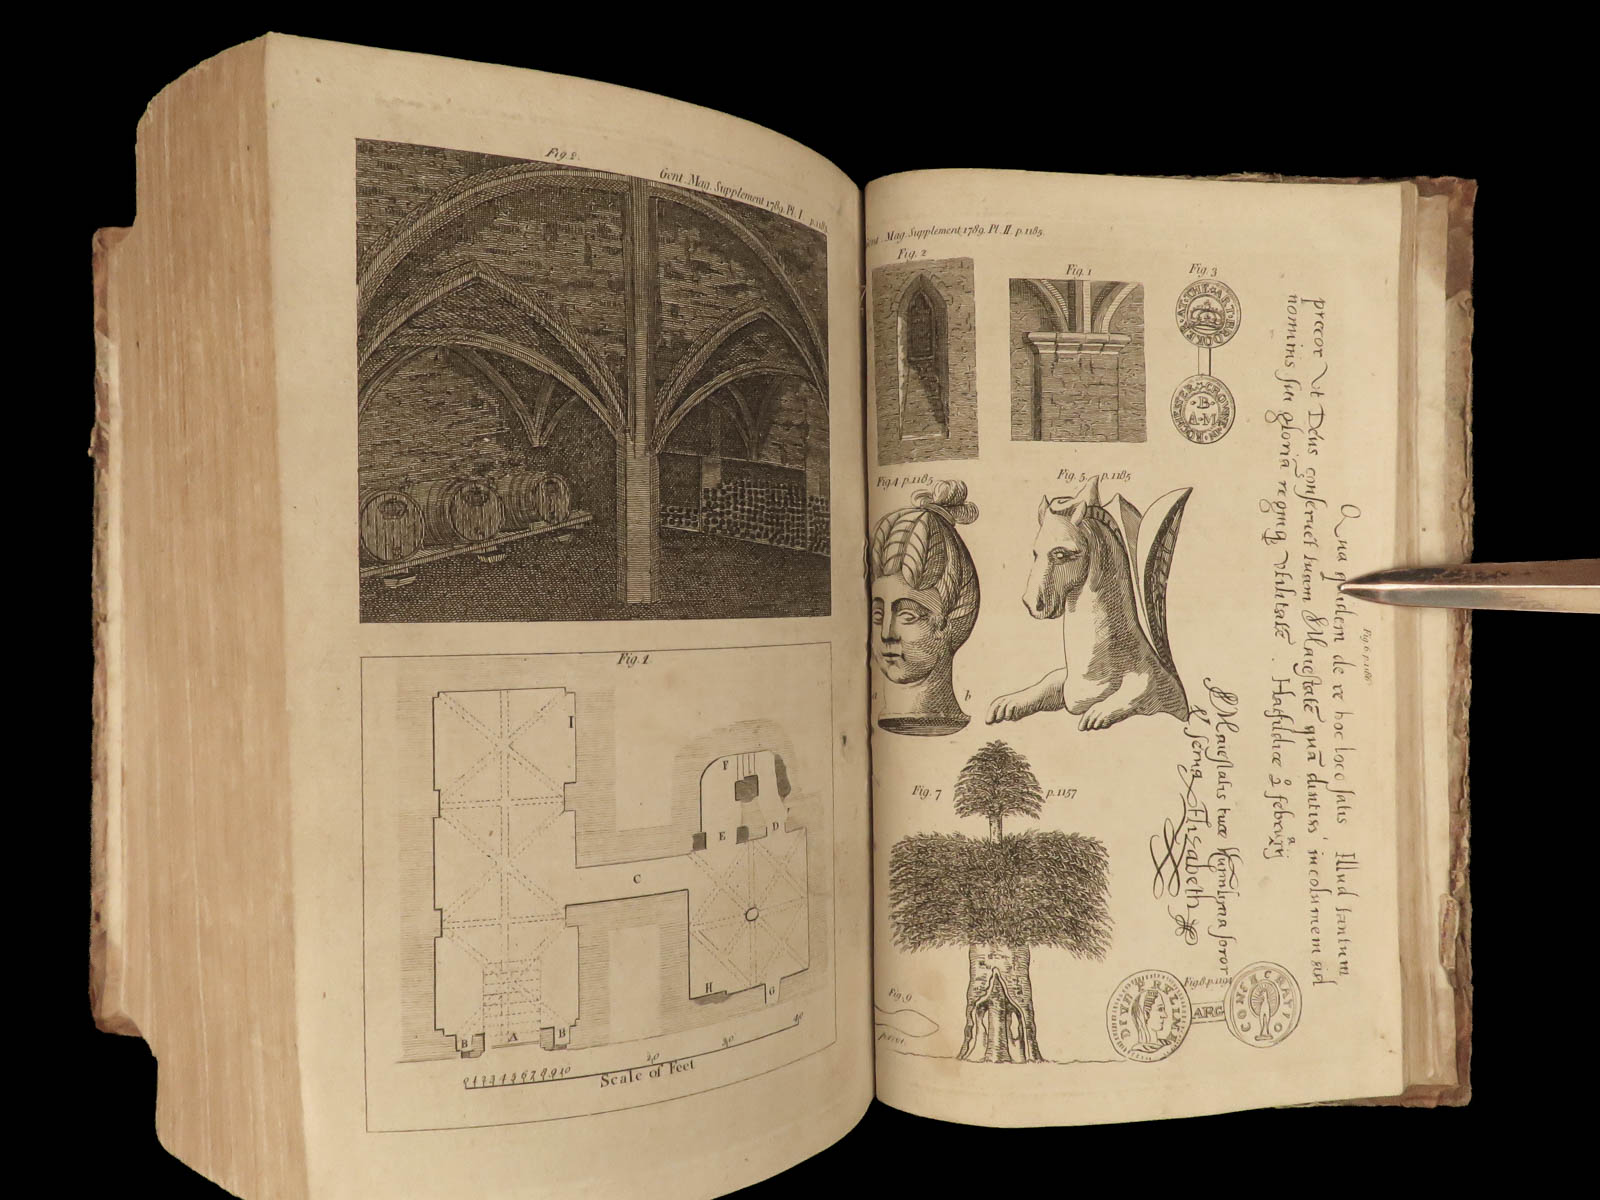 Fig. 2.
Gent. Mag. Supplement 1789. Pl. I. p. 1181.
Fig. 1
I
F
E
D
C
H
G
B
A
B
10
20
30
40
Scale of Feet
Gent. Mag. Supplement, 1789. Pl. II. p. 1185.
Fig. 2
Fig. 1
Fig. 3
AT THE
B
A M
CROWNE IN
Fig. 4 p. 1185
Fig. 5. p. 1185
a
b
Fig. 6 p. 1186
Qua quidem de re hoc loco satis Illud tantum
precor Vt Deus conseruet tuam Maiestatē quā diutiss' incolumem ad
nominis sui gloriā regniq̨ vtilitatē. Hatfildiæ 2 februarij
Maiestatis tuæ humilima soror
& serua Elizabeth
Fig. 7
p. 1157
Fig. 8. p. 1194
ARG
CONSECRATIO
Fig. 9